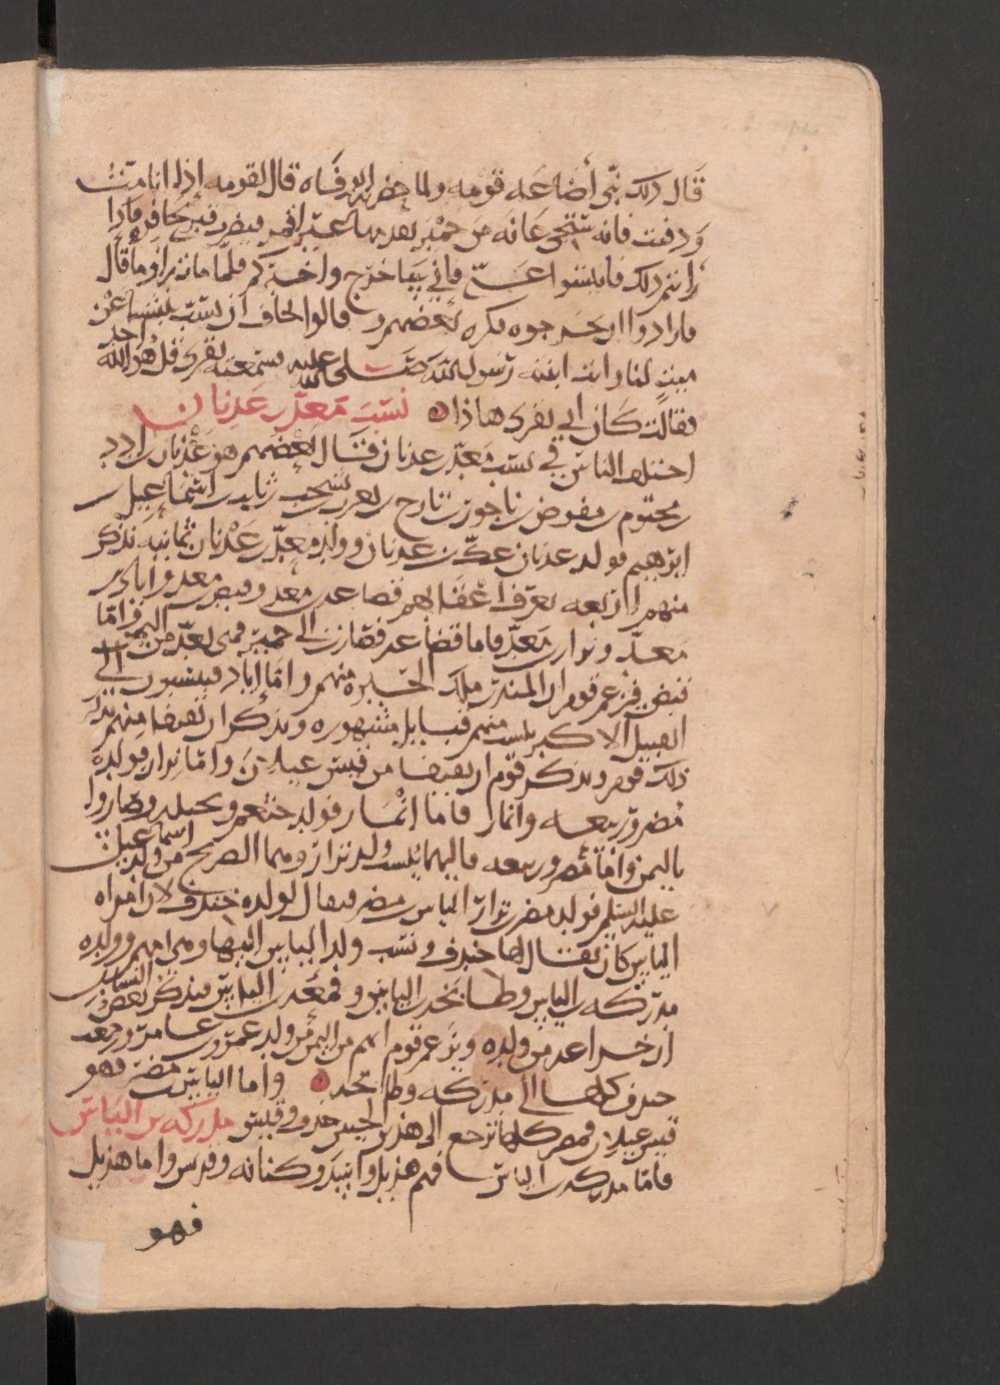 قَال ذلك نبّى أضاعَه قومه ولما حضرته الوفَاه قال لقومه إذا انا متّ
وَدفنت فانه ستجى عانه من حمْيَر يقدمها عيرٌ اقمر فيضرب قبرى بحافره فاذا
رايتم ذلك فانبشوا عنّى فانى ساخرج واخبركم فلمّا مات راوا ما قال
فارادوا ان يخرجوه فكره بعضهم وقالوا نخاف ان نسبّ بنبشنا عن
ميت لنا واتت ابنته رَسُول الله صَلى الله عليه فسمعته يقرى قل هو الله احد
فقالت كان ابى يقرى هاذا ه نسَب مَعدّ بن عَدنان
اختلف الناس فى نسَب مَعَدّ بن عدنان فقال بعضهم هو عَدْنان بن ادد
بن يحثوم بن مقوم بن ناحور بن تارح بن يعرب بن يشجب بن نابت بن اسماعيل بن
ابرهيم فولد عدنان عكّ بن عدنان وولد معَدّ بن عَدْنان ثمانيَه نذكر
منهم اربعه تعرف اعقابهم قضاعه بن معد وقنص بن معد واياد بن
مَعدّ ونزار بن مَعَدّ فاما قضاعه فصارت الى حمير فهى تعدّ من اليمن وامّا
قنص فزعم قوم ان المنذر ملك الحيره منهم وامّا إياد فينسبون الى
القبيل الاكبر ليست منهم قبايل مشهوره ويذكر ان ثقيفا منهم
ذلك قوم ويذكر قوم ان ثقيفا من قيس عيلان وامّا نزار فولده
مُضر وربيعه وانمار فاما انْمَار فولد خثعم وبجيله وصاروا
باليمن وامّا مُضر وربيعه فاليهما ينسب ولد نزار وهما الصريح من ولد اسماعيل
عليه السلم فولد مضر بن نزار الياس بن مضر فيقال لولده خندف لان امراه
الياس كان يقال لها خندف ونسَب ولد الياس اليها وهى امهم وولده
مدركه بن الياس وطابخه بن الياس وقمعَه بن الياس فيذكر بعض النساب
ان خزاعه من ولده ويزعم قوم انهم من اليمن من ولد عمرو بن عامر وترجع
خندف كلها الى مدركه وطابخه ه واما الياس بن مضر فهو
قيس عيلان فمضر كلها ترجع الى هذين الحيين خندف وقيس مدركه بن الياس
فامّا مدركه بن الياس فهم هذيل واسد وكنانه وقريش واما هذيل
فهو